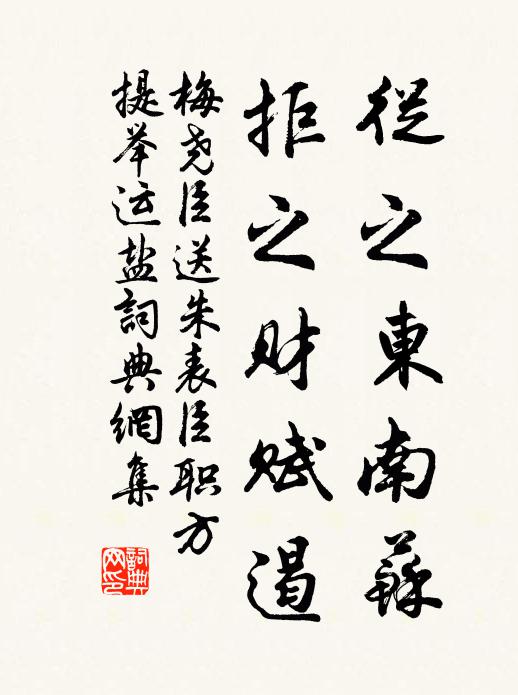 從之東南蘇
拒之财赋遏
梅尧臣送朱表臣职方
提举运盐詞典網集
詞典
网印